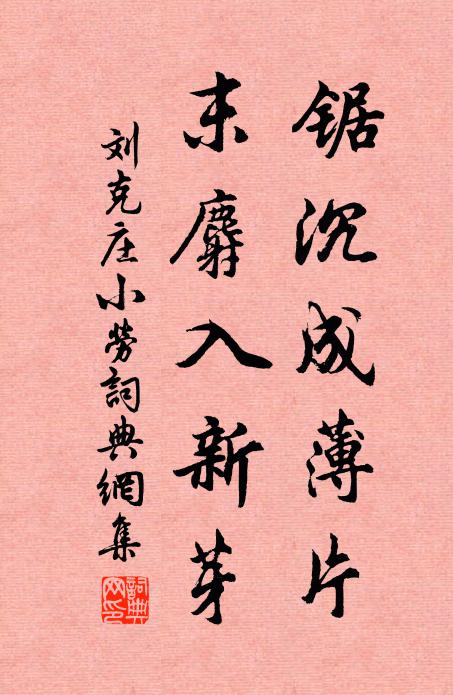 锯沉成薄片
末麝入新芽
刘克庄小劳詞典網集
詞典网印